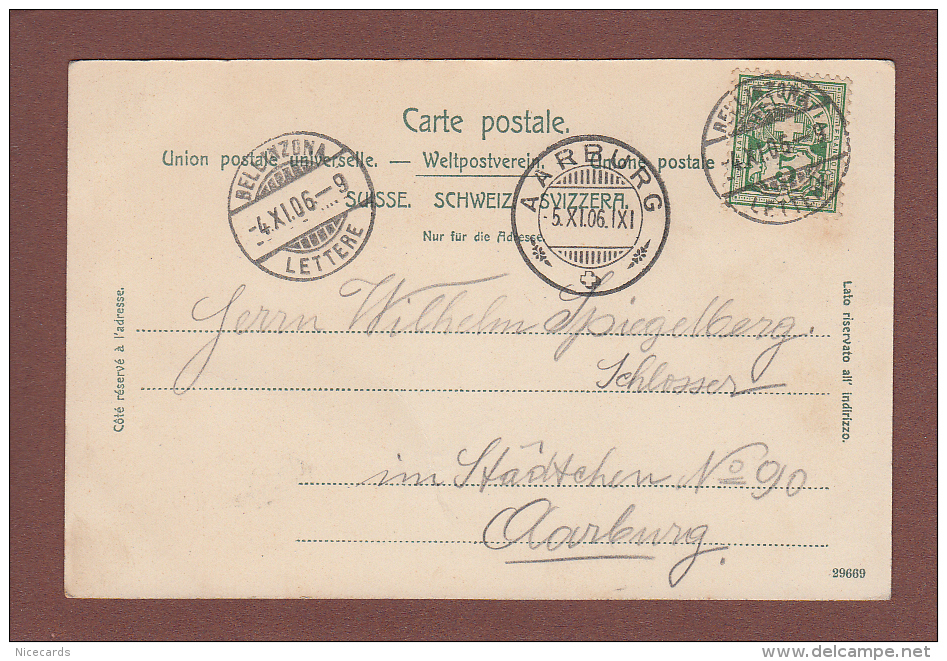 Carte postale.
Union postale universelle. — Weltpostverein. — Unione postale
SUISSE. SCHWEIZ. SVIZZERA.
Nur für die Adresse.
BELLINZONA
-4.XI.06-9
LETTERE
AARBURG
-5.XI.06.IXI
BELLINZONA
-4.XI.06-
LETTERE
5
Herrn Wilhelm Spiegelberg.
Schlosser
im Städtchen No 90
Aarburg
Côté réservé à l'adresse.
Lato riservato all' indirizzo.
29669
Nicecards
delcampe.net